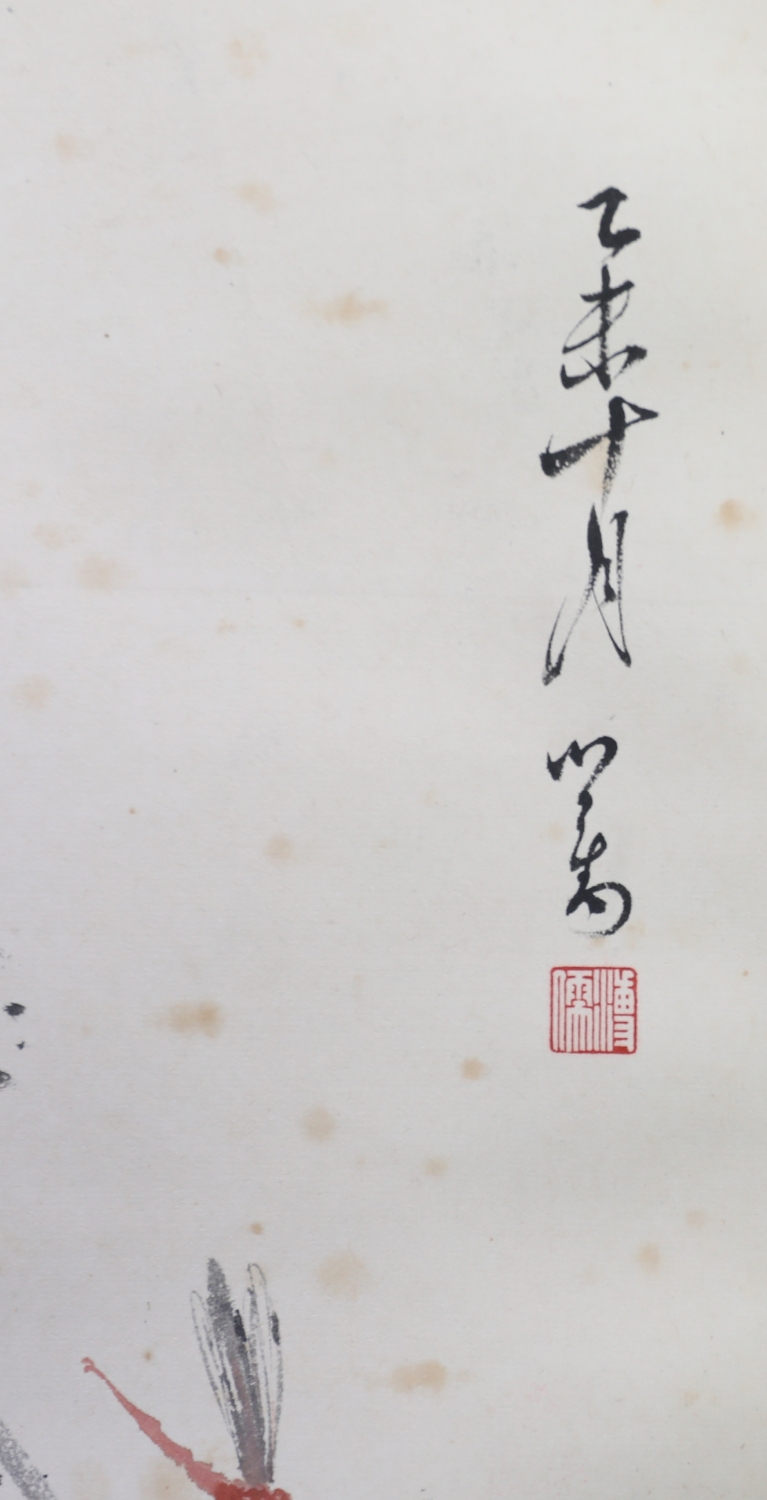 乙未十月 心畬
溥儒